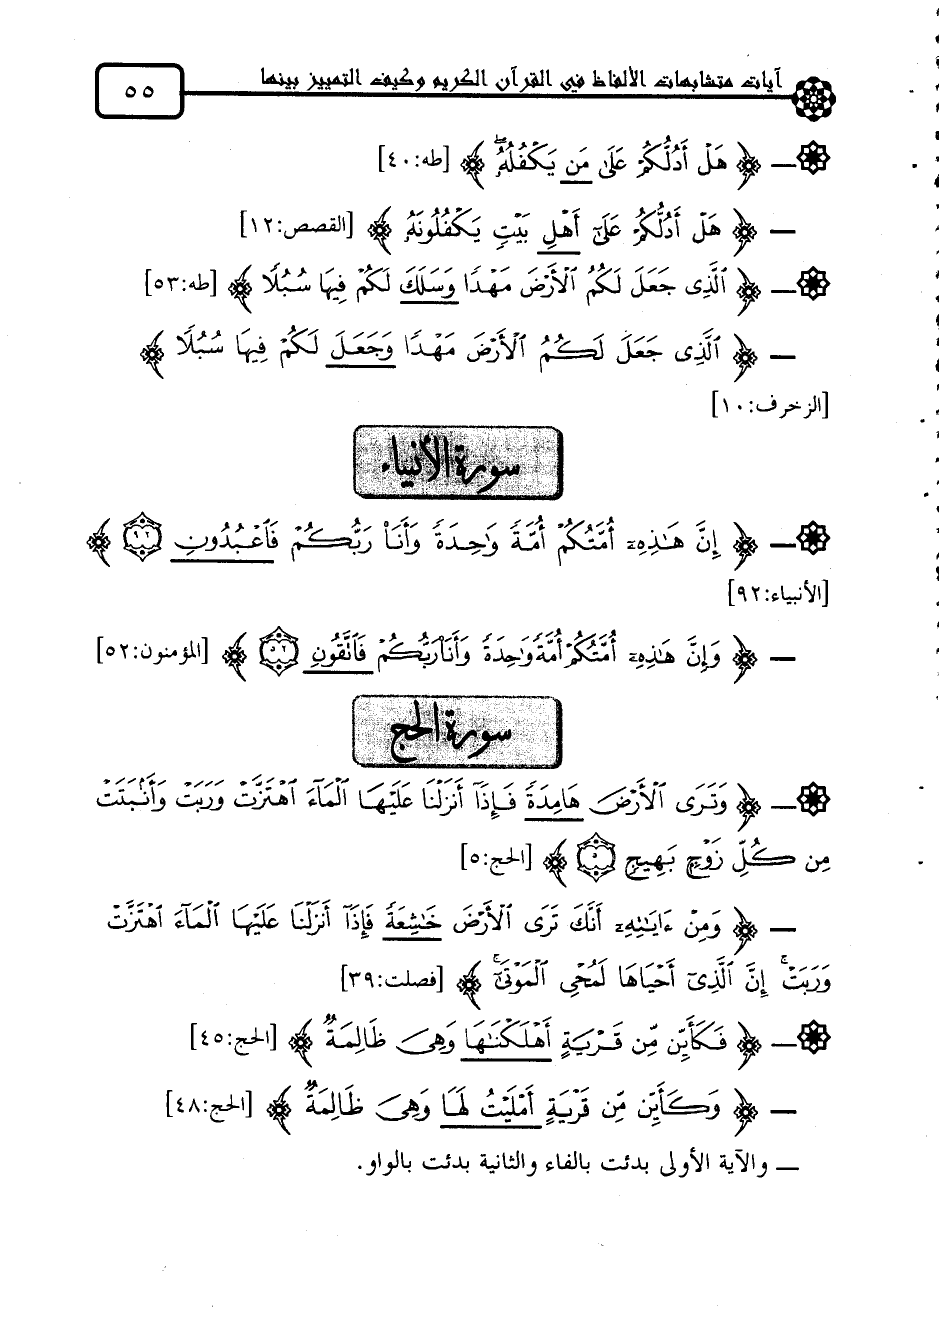 آيات متشابهات الألفاظ في القرآن الكريم وكيف التمييز بينها
٥٥
— ﴿ هَلْ أَدُلُّكُمْ عَلَىٰ مَن يَكْفُلُهُۥ ۖ ﴾ [طه:٤٠]
— ﴿ هَلْ أَدُلُّكُمْ عَلَىٰٓ أَهْلِ بَيْتٍ يَكْفُلُونَهُۥ ﴾ [القصص:١٢]
— ﴿ ٱلَّذِى جَعَلَ لَكُمُ ٱلْأَرْضَ مَهْدًا وَسَلَكَ لَكُمْ فِيهَا سُبُلًا ﴾ [طه:٥٣]
— ﴿ ٱلَّذِى جَعَلَ لَكُمُ ٱلْأَرْضَ مَهْدًا وَجَعَلَ لَكُمْ فِيهَا سُبُلًا ﴾
[الزخرف:١٠]
سورة الأنبياء
— ﴿ إِنَّ هَـٰذِهِۦٓ أُمَّتُكُمْ أُمَّةً وَٰحِدَةً وَأَنَا۠ رَبُّكُمْ فَٱعْبُدُونِ ٩٢ ﴾
[الأنبياء:٩٢]
— ﴿ وَإِنَّ هَـٰذِهِۦٓ أُمَّتُكُمْ أُمَّةً وَٰحِدَةً وَأَنَا۠ رَبُّكُمْ فَٱتَّقُونِ ٥٢ ﴾ [المؤمنون:٥٢]
سورة الحج
— ﴿ وَتَرَى ٱلْأَرْضَ هَامِدَةً فَإِذَآ أَنزَلْنَا عَلَيْهَا ٱلْمَآءَ ٱهْتَزَّتْ وَرَبَتْ وَأَنۢبَتَتْ
مِن كُلِّ زَوْجٍۭ بَهِيجٍ ٥ ﴾ [الحج:٥]
— ﴿ وَمِنْ ءَايَـٰتِهِۦٓ أَنَّكَ تَرَى ٱلْأَرْضَ خَـٰشِعَةً فَإِذَآ أَنزَلْنَا عَلَيْهَا ٱلْمَآءَ ٱهْتَزَّتْ
وَرَبَتْ ۚ إِنَّ ٱلَّذِىٓ أَحْيَاهَا لَمُحْىِ ٱلْمَوْتَىٰٓ ۚ ﴾ [فصلت:٣٩]
— ﴿ فَكَأَيِّن مِّن قَرْيَةٍ أَهْلَكْنَـٰهَا وَهِىَ ظَالِمَةٌ ﴾ [الحج:٤٥]
— ﴿ وَكَأَيِّن مِّن قَرْيَةٍ أَمْلَيْتُ لَهَا وَهِىَ ظَالِمَةٌ ﴾ [الحج:٤٨]
— والآية الأولى بدئت بالفاء والثانية بدئت بالواو.